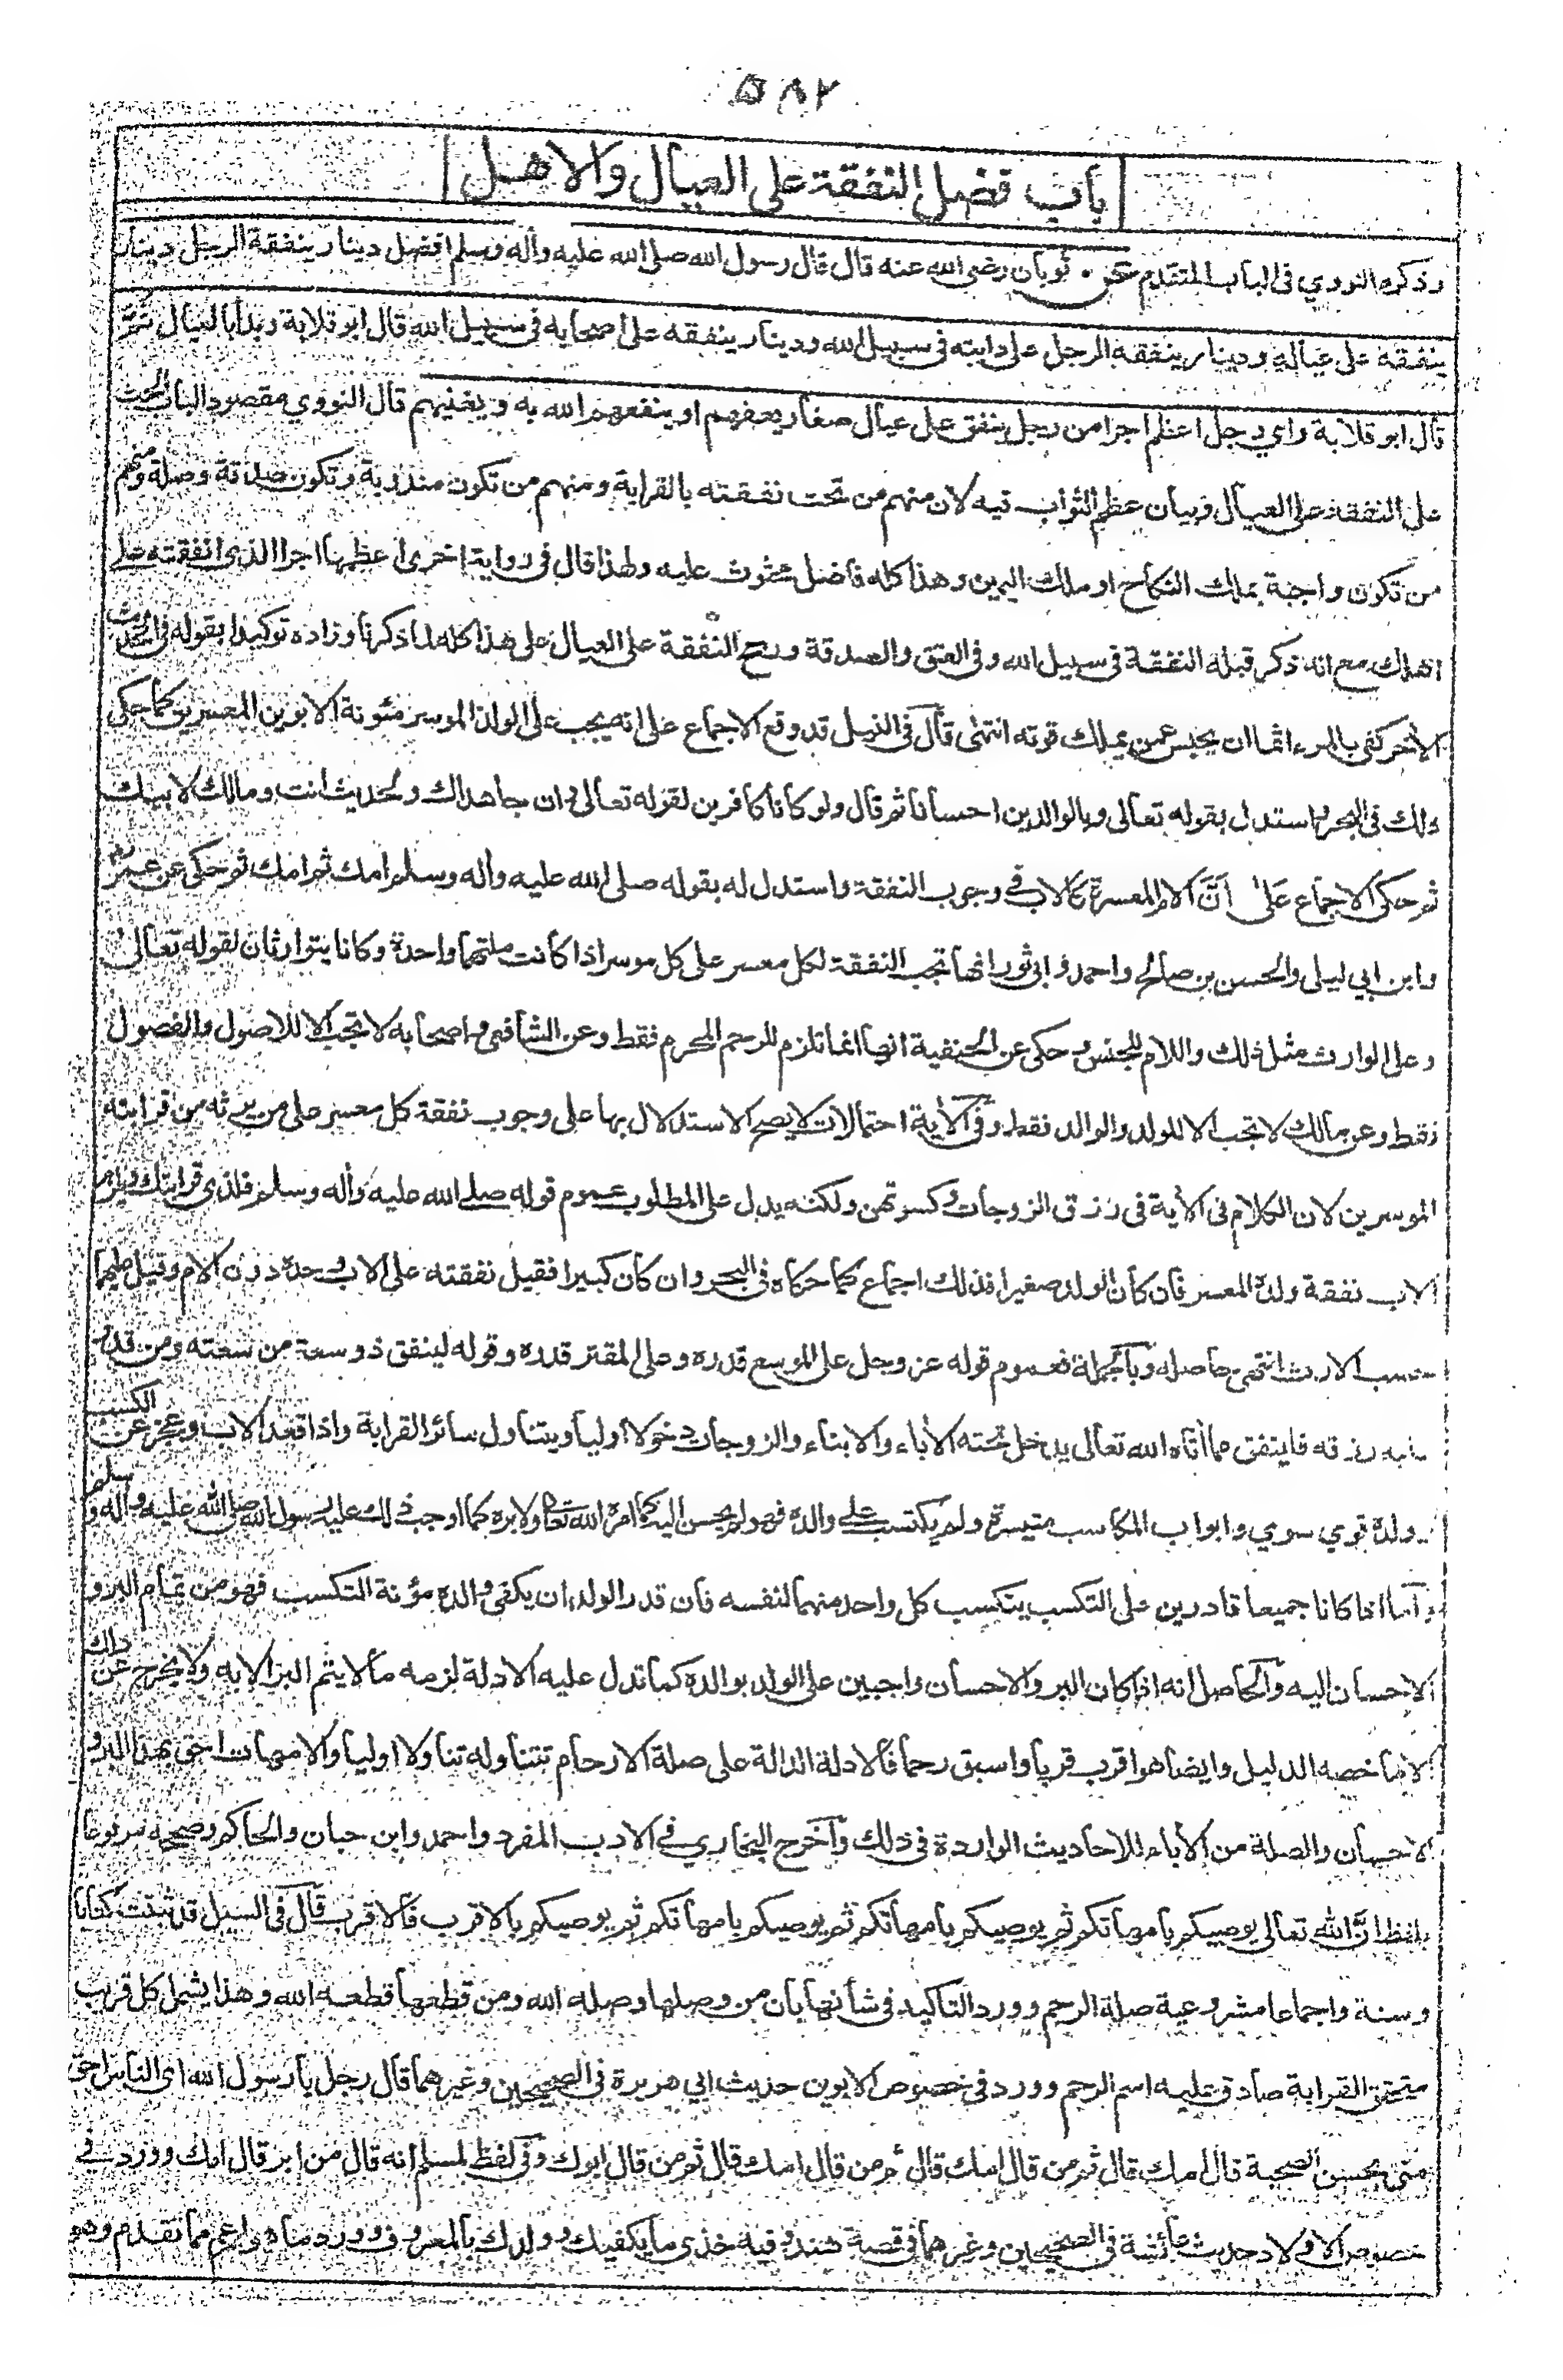 ٥٨٢
باب فضل النفقة على العيال والاهل
وذكره النووي فى الباب المتقدم عن ثوبان رضى الله عنه قال قال رسول الله صلى الله عليه وأله وسلم افضل دينار ينفقة الرجل دينار
ينفقه على عياله ودينار ينفقه الرجل على دابته فى سبيل الله ودينار ينفقه على اصحابه فى سبيل الله قال ابو قلابة وبدأ بالعيال ثم
قال ابو قلابة واي رجل اعظم اجرا من رجل ينفق على عيال صغار يعفهم او ينفعهم الله به ويغنيهم قال النووي مقصود الباب الحث
على النفقة على العيال وبيان عظم الثواب فيه لان منهم من تجب نفقته بالقرابة ومنهم من تكون مندوبة وتكون صدقة وصلة ومنهم
من تكون واجبة بملك النكاح او ملك اليمين وهذا كله فاضل محثوث عليه ولهذا قال فى رواية اخرى اعظمها اجرا الذى انفقته على
اهلك مع انه ذكر قبله النفقة فى سبيل الله وفى العتق والصدقة ورجح النفقة على العيال على هذا كله لما ذكرنا وزاده توكيدا بقوله فى الحديث
الأخر كفى بالمرء اثما ان يحبس عمن يملك قوته انتهى قال فى النيل قد وقع الاجماع على انه يجب على الولد الموسر مئونة الابوين المعسرين كما حكى
ذلك فى البحر واستدل بقوله تعالى وبالوالدين احسانا ثم قال ولو كانا كافرين لقوله تعالى وان جاهداك ولحديث انت ومالك لابيك
ثم حكى الاجماع على ان الام المعسرة كالاب فى وجوب النفقة واستدل له بقوله صلى الله عليه وأله وسلم امك ثم امك ثم حكى عن عمر
وابن ابي ليلى والحسن بن صالح واحمد وابي ثور انها تجب النفقة لكل معسر على كل موسر اذا كانت ملتهما واحدة وكانا يتوارثان لقوله تعالى
وعلى الوارث مثل ذلك واللام للجنس وحكى عن الحنفية انها انما تلزم للرحم المحرم فقط وعن الشافعى واصحابه لا تجب الا للاصول والفصول
فقط وعن مالك لا تجب الا للولد والوالد فقط وفى الأية احتمالات لا يصح الاستدلال بها على وجوب نفقة كل معسر على من يرثه من قرابته
الموسرين لان الكلام فى الأية فى رزق الزوجات وكسوتهن ولكنه يدل على المطلوب عموم قوله صلى الله عليه وأله وسلم فلذى قرابتك ويلزم
الاب نفقة ولده المعسر فان كان الولد صغيرا فذلك اجماع كما حكاه فى البحر وان كان كبيرا فقيل نفقته على الاب وحده دون الام وقيل عليهما
حسب الارث انتهى حاصله وبالجملة فعموم قوله عز وجل على الموسع قدره وعلى المقتر قدره وقوله لينفق ذو سعة من سعته ومن قدر
عليه رزقه فلينفق مما أتاه الله تعالى يدخل تحته الأباء والابناء والزوجات دخولا اوليا ويتناول سائر القرابة واذا قعد الاب وعجز عن الكسب
وولده قوي سوي وابواب المكاسب متيسرة ولم يكتسب على والده فهو لم يحسن اليه كما امره الله تعالى ولا بره كما اوجب ذلك عليه رسول الله صلى الله عليه وأله وسلم
وأما اذا كانا جميعا قادرين على التكسب يتكسب كل واحد منهما لنفسه فان قدر الولد ان يكفى والده مؤنة التكسب فهو من تمام البر و
الاحسان اليه والحاصل انه اذا كان البر والاحسان واجبين على الولد بوالده كما تدل عليه الادلة لزمه ما لا يتم البر الا به ولا يخرج عن ذلك
الا ما خصه الدليل وايضا هو اقرب قريب واسبق رحما فالادلة الدالة على صلة الارحام تتناوله تناولا اوليا والامهات احق بهذا البر و
الاحسان والصلة من الأباء للاحاديث الواردة فى ذلك وأخرج البخاري فى الادب المفرد واحمد وابن حبان والحاكم وصححه مرفوعا
بلفظ ان الله تعالى يوصيكم بامهاتكم ثم يوصيكم بامهاتكم ثم يوصيكم بامهاتكم ثم يوصيكم بالاقرب فالاقرب قال فى السيل قد ثبتت كتابا
وسنة واجماعا مشروعية صلة الرحم وورد التاكيد فى شأنها بان من وصلها وصله الله ومن قطعها قطعه الله وهذا يشمل كل قريب
متحقق القرابة صادق عليه اسم الرحم وورد فى خصوص الابوين حديث ابي هريرة فى الصحيحين وغيرهما قال رجل يا رسول الله اى الناس احق
منى بحسن الصحبة قال امك قال ثم من قال امك قال ثم من قال امك قال ثم من قال ابوك وفى لفظ لمسلم انه قال من ابر قال امك وورد فى
خصوص الاولاد حديث عائشة فى الصحيحين وغيرهما فى قصة هند وفيه خذى ما يكفيك وولدك بالمعروف وورد ما هو اعم مما تقدم وهو